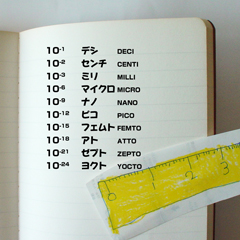 10-1 デシ DECI
10-2 センチ CENTI
10-3 ミリ MILLI
10-6 マイクロ MICRO
10-9 ナノ NANO
10-12 ピコ PICO
10-15 フェムト FEMTO
10-18 アト ATTO
10-21 ゼプト ZEPTO
10-24 ヨクト YOCTO
0 1 2 3